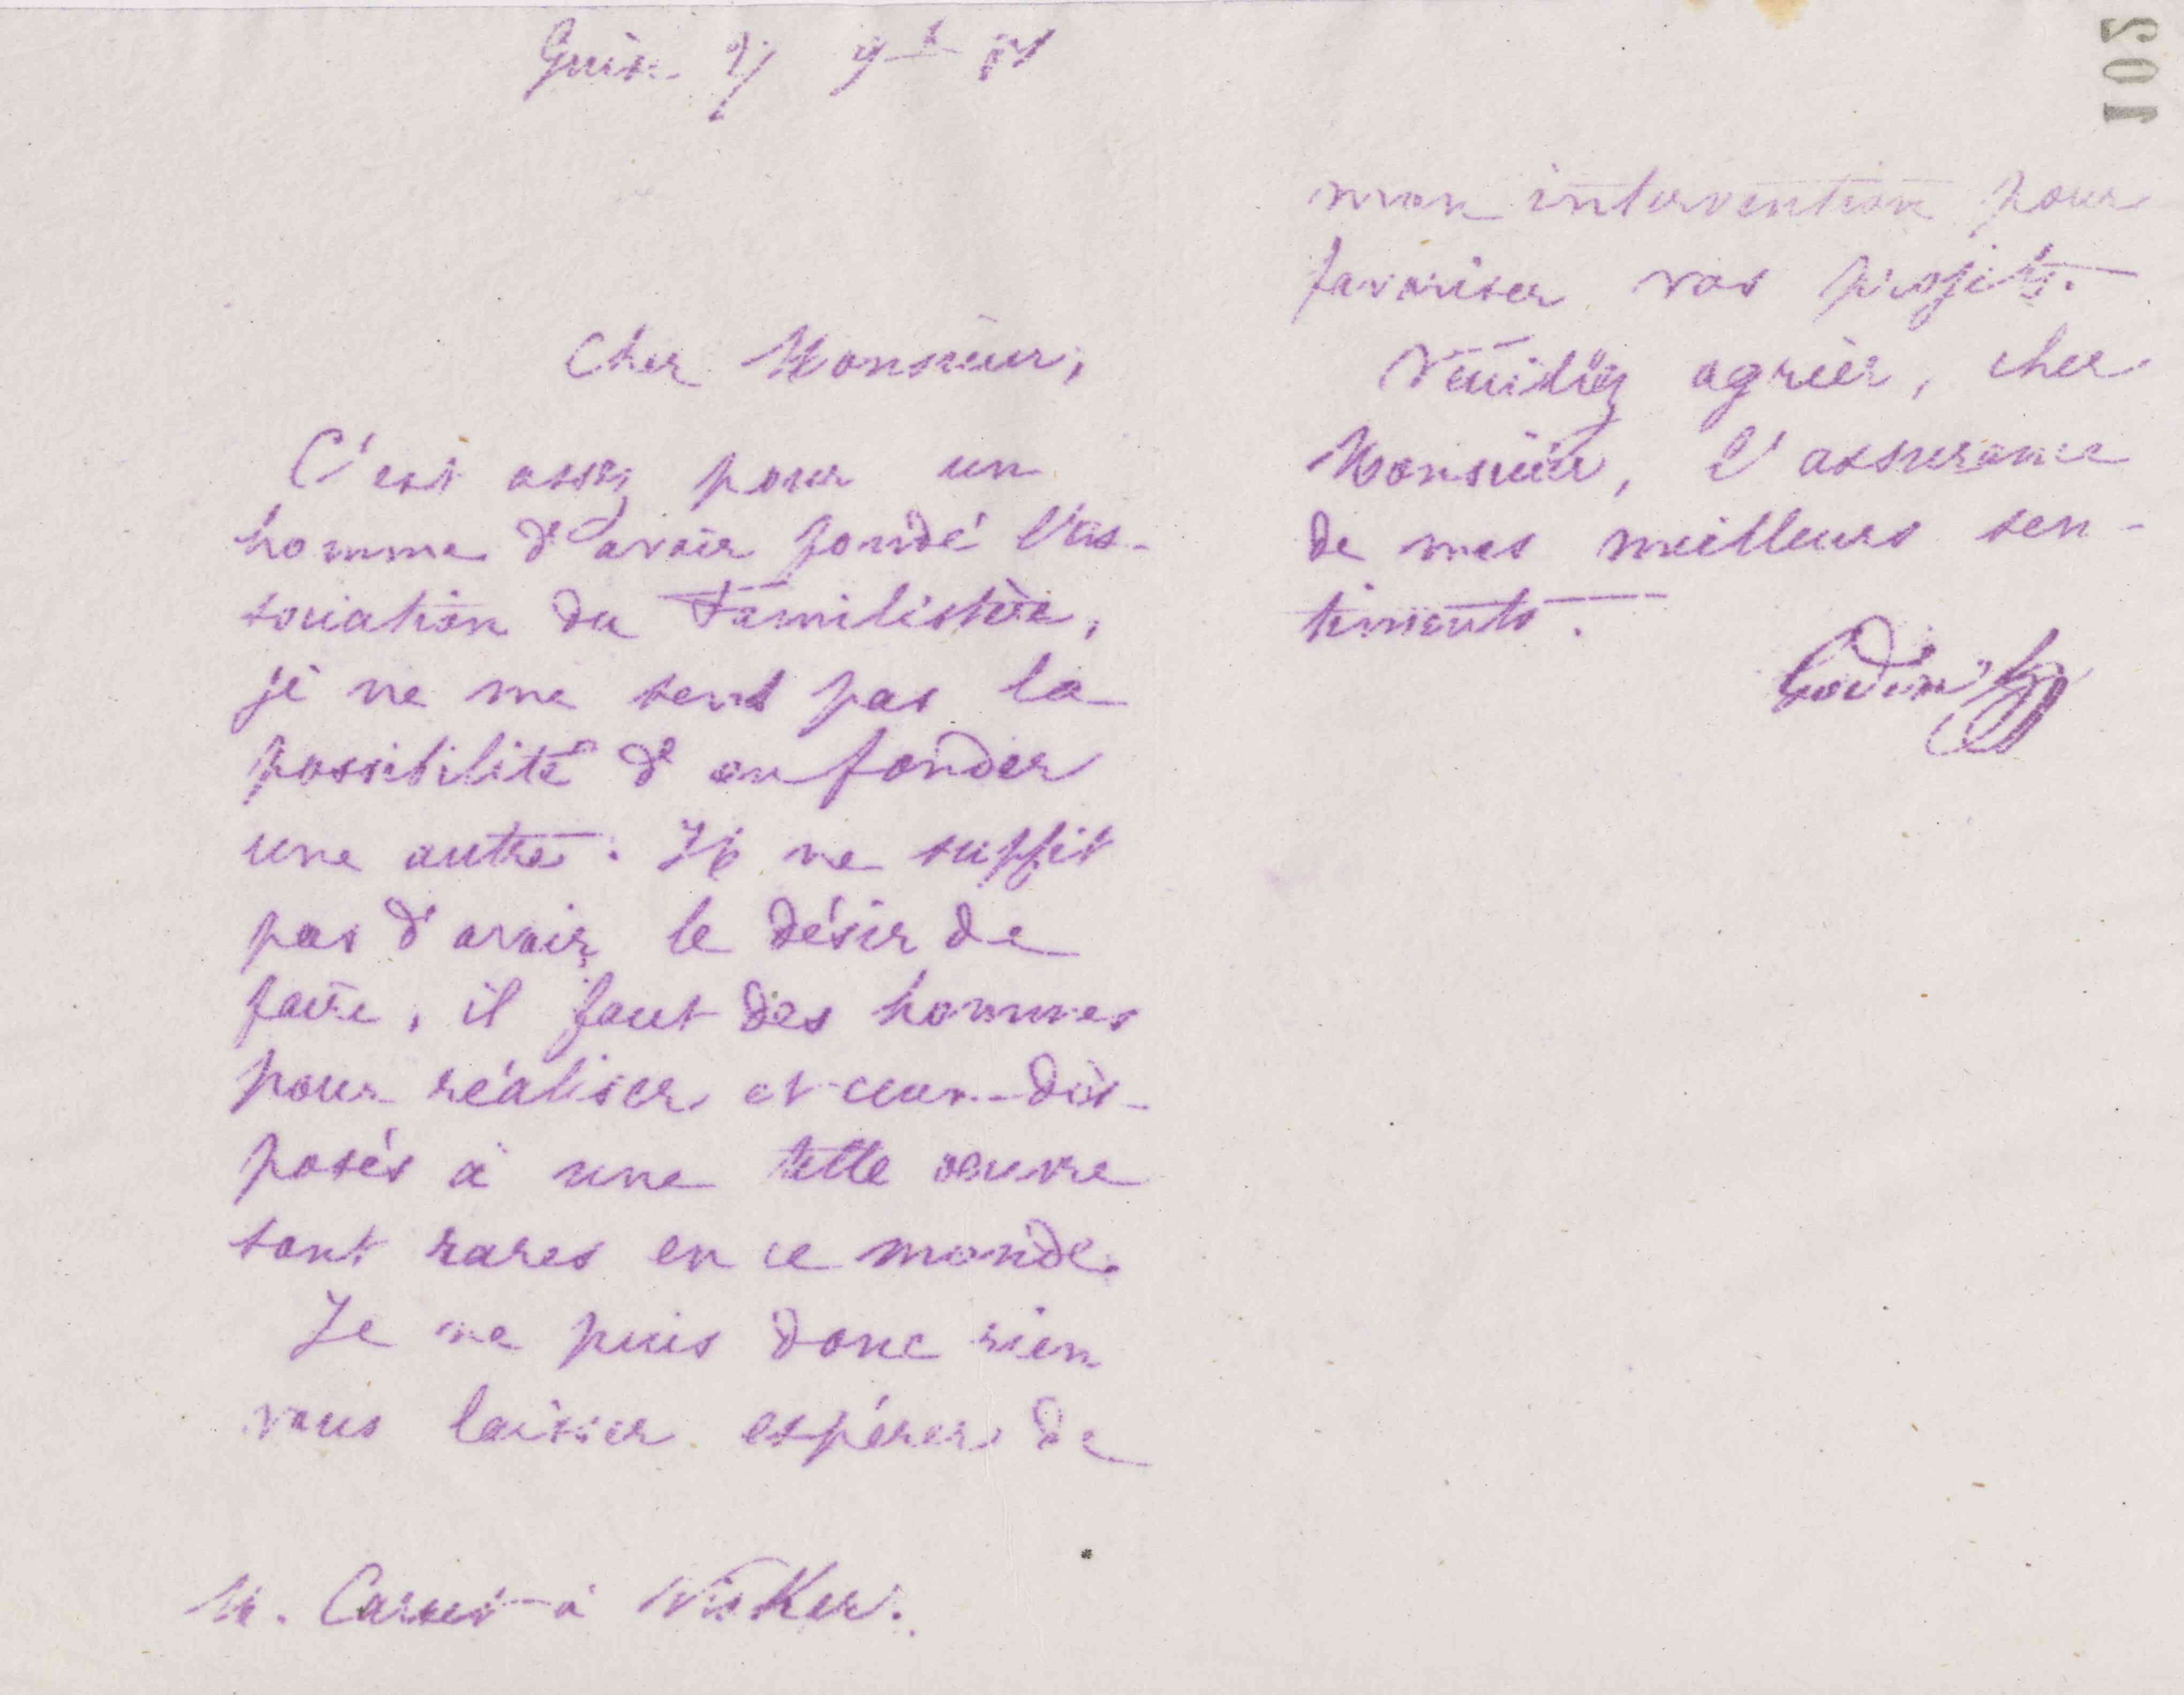 Guise
Cher Monsieur,
C'est assez pour un
homme d'avoir fondé l'as-
sociation du Familistère,
je ne me sens pas la
possibilité d'en fonder
une autre. Il ne suffit
pas d'avoir le désir de
faire, il faut des hommes
pour réaliser et ceux dis-
posés à une telle œuvre
sont rares en ce monde.
Je ne puis donc rien
vous laisser espérer de
M. à
105
mon intervention pour
favoriser vos projets.
Veuillez agréer, cher
Monsieur, l'assurance
de mes meilleurs sen-
timents.
Godin